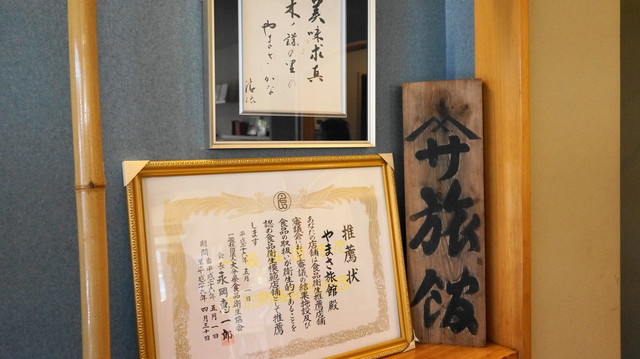 美味求真
木ノ謀の里の
やまさかな
推薦状
やまさ旅館殿
あなたの店舗は食品衛生推薦店舗
審議会において審議の結果施設及び
食品の取扱いが衛生的であることを
認め食品衛生模範店舗として推薦
します
平成二十八年五月一日
一般社団法人大分県食品衛生協会
会長永岡惠一郎
期間 自平成二十八年五月一日
至平成二十九年四月三十日
サ旅館